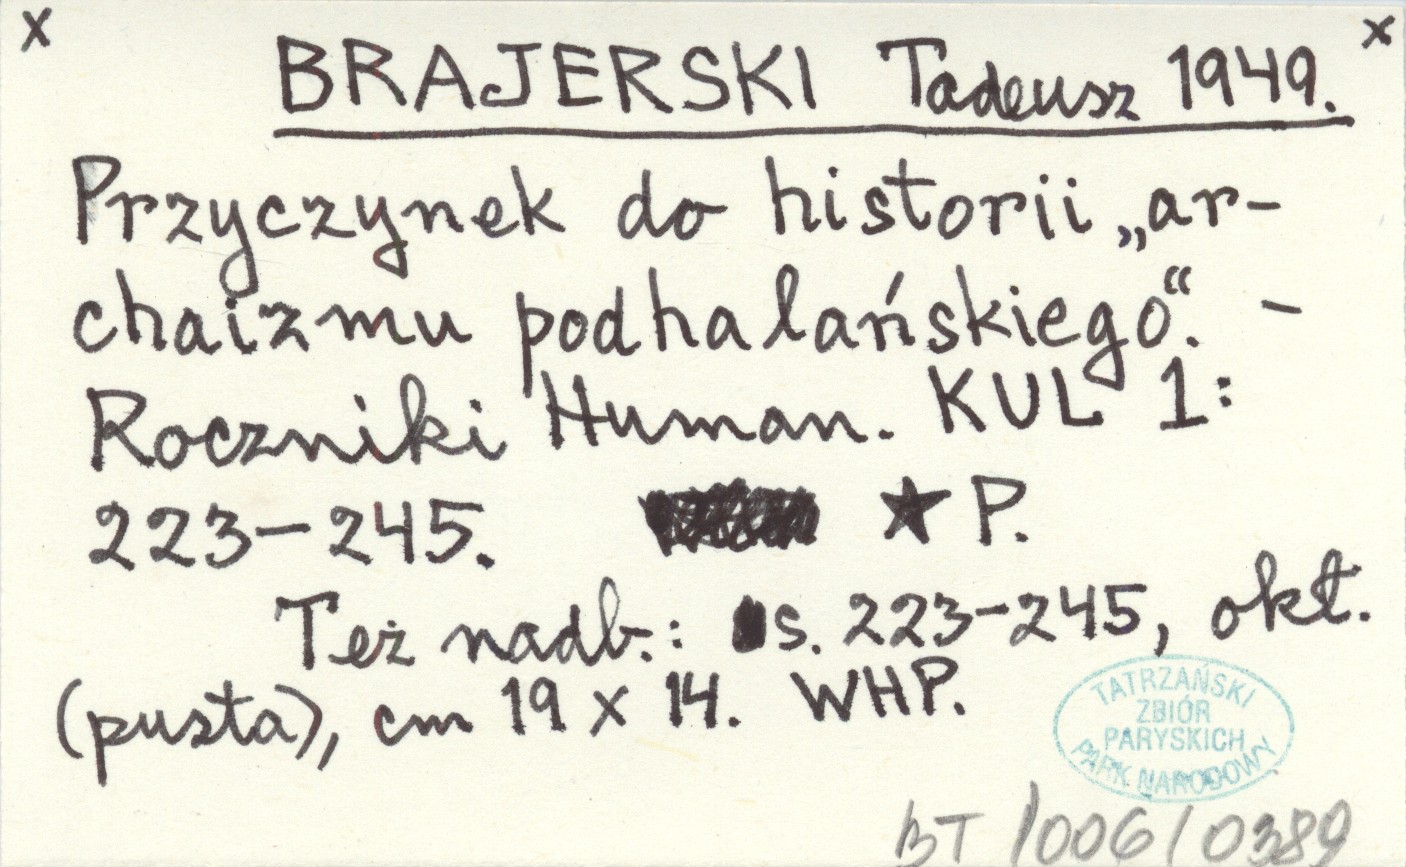 x x
BRAJERSKI Tadeusz 1949.
Przyczynek do historii „ar-
chaizmu podhalańskiego“. –
Roczniki Human. KUL 1:
223–245. ★ P.
Też nadb.: s. 223–245, okł.
(pusta), cm 19 x 14. WHP.
TATRZAŃSKI
ZBIÓR
PARYSKICH
PARK NARODOWY
BT /006/0389